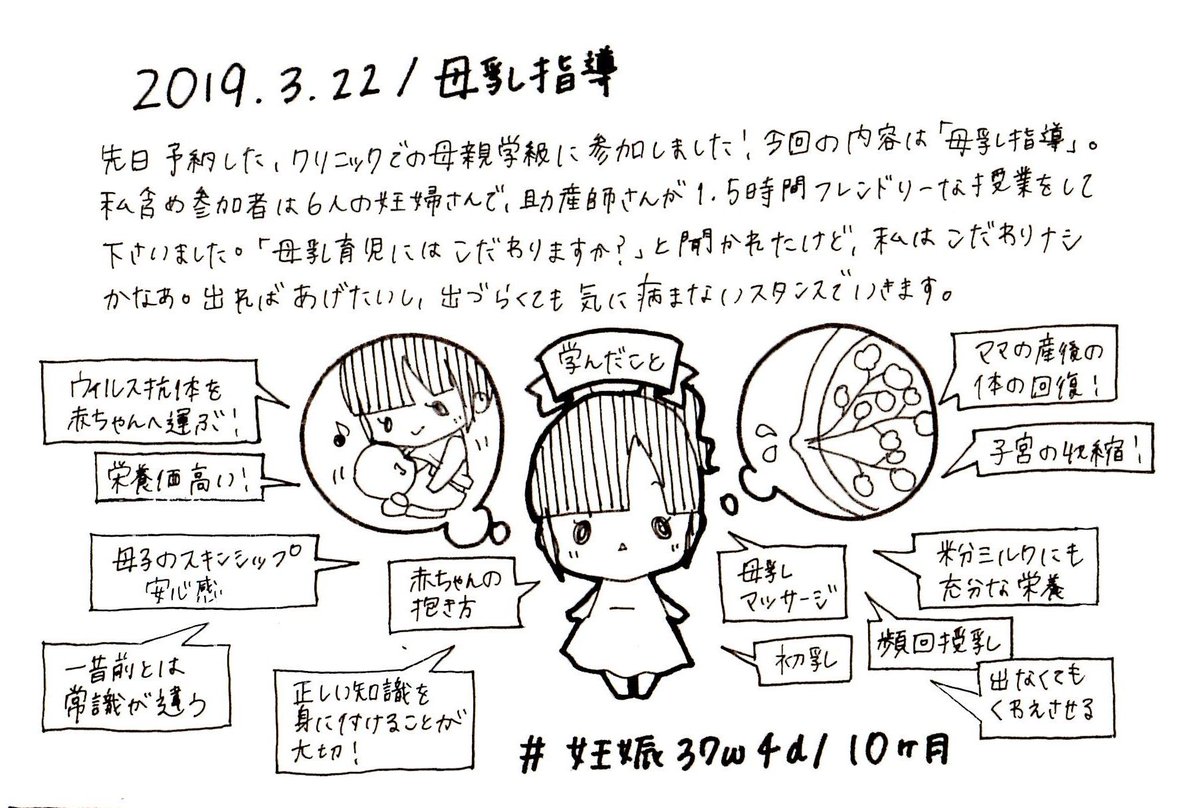 2019.3.22/母乳指導
先日予約した、クリニックでの母親学級に参加しました！今回の内容は「母乳指導」。
私含め参加者は6人の妊婦さんで、助産師さんが1.5時間フレンドリーな授業をして
下さいました。「母乳育児にはこだわりますか？」と聞かれたけど、私はこだわりナシ
かなぁ。出ればあげたいし、出づらくても気に病まないスタンスでいきます。
学んだこと
ウィルス抗体を
赤ちゃんへ運ぶ！
栄養価高い！
母子のスキンシップ
安心感
一昔前とは
常識が違う
赤ちゃんの
抱き方
正しい知識を
身に付けることが
大切！
ママの産後の
体の回復！
子宮の収縮！
母乳
マッサージ
粉ミルクにも
充分な栄養
初乳
頻回授乳
出なくても
くわえさせる
#妊娠37w4d/10ヶ月